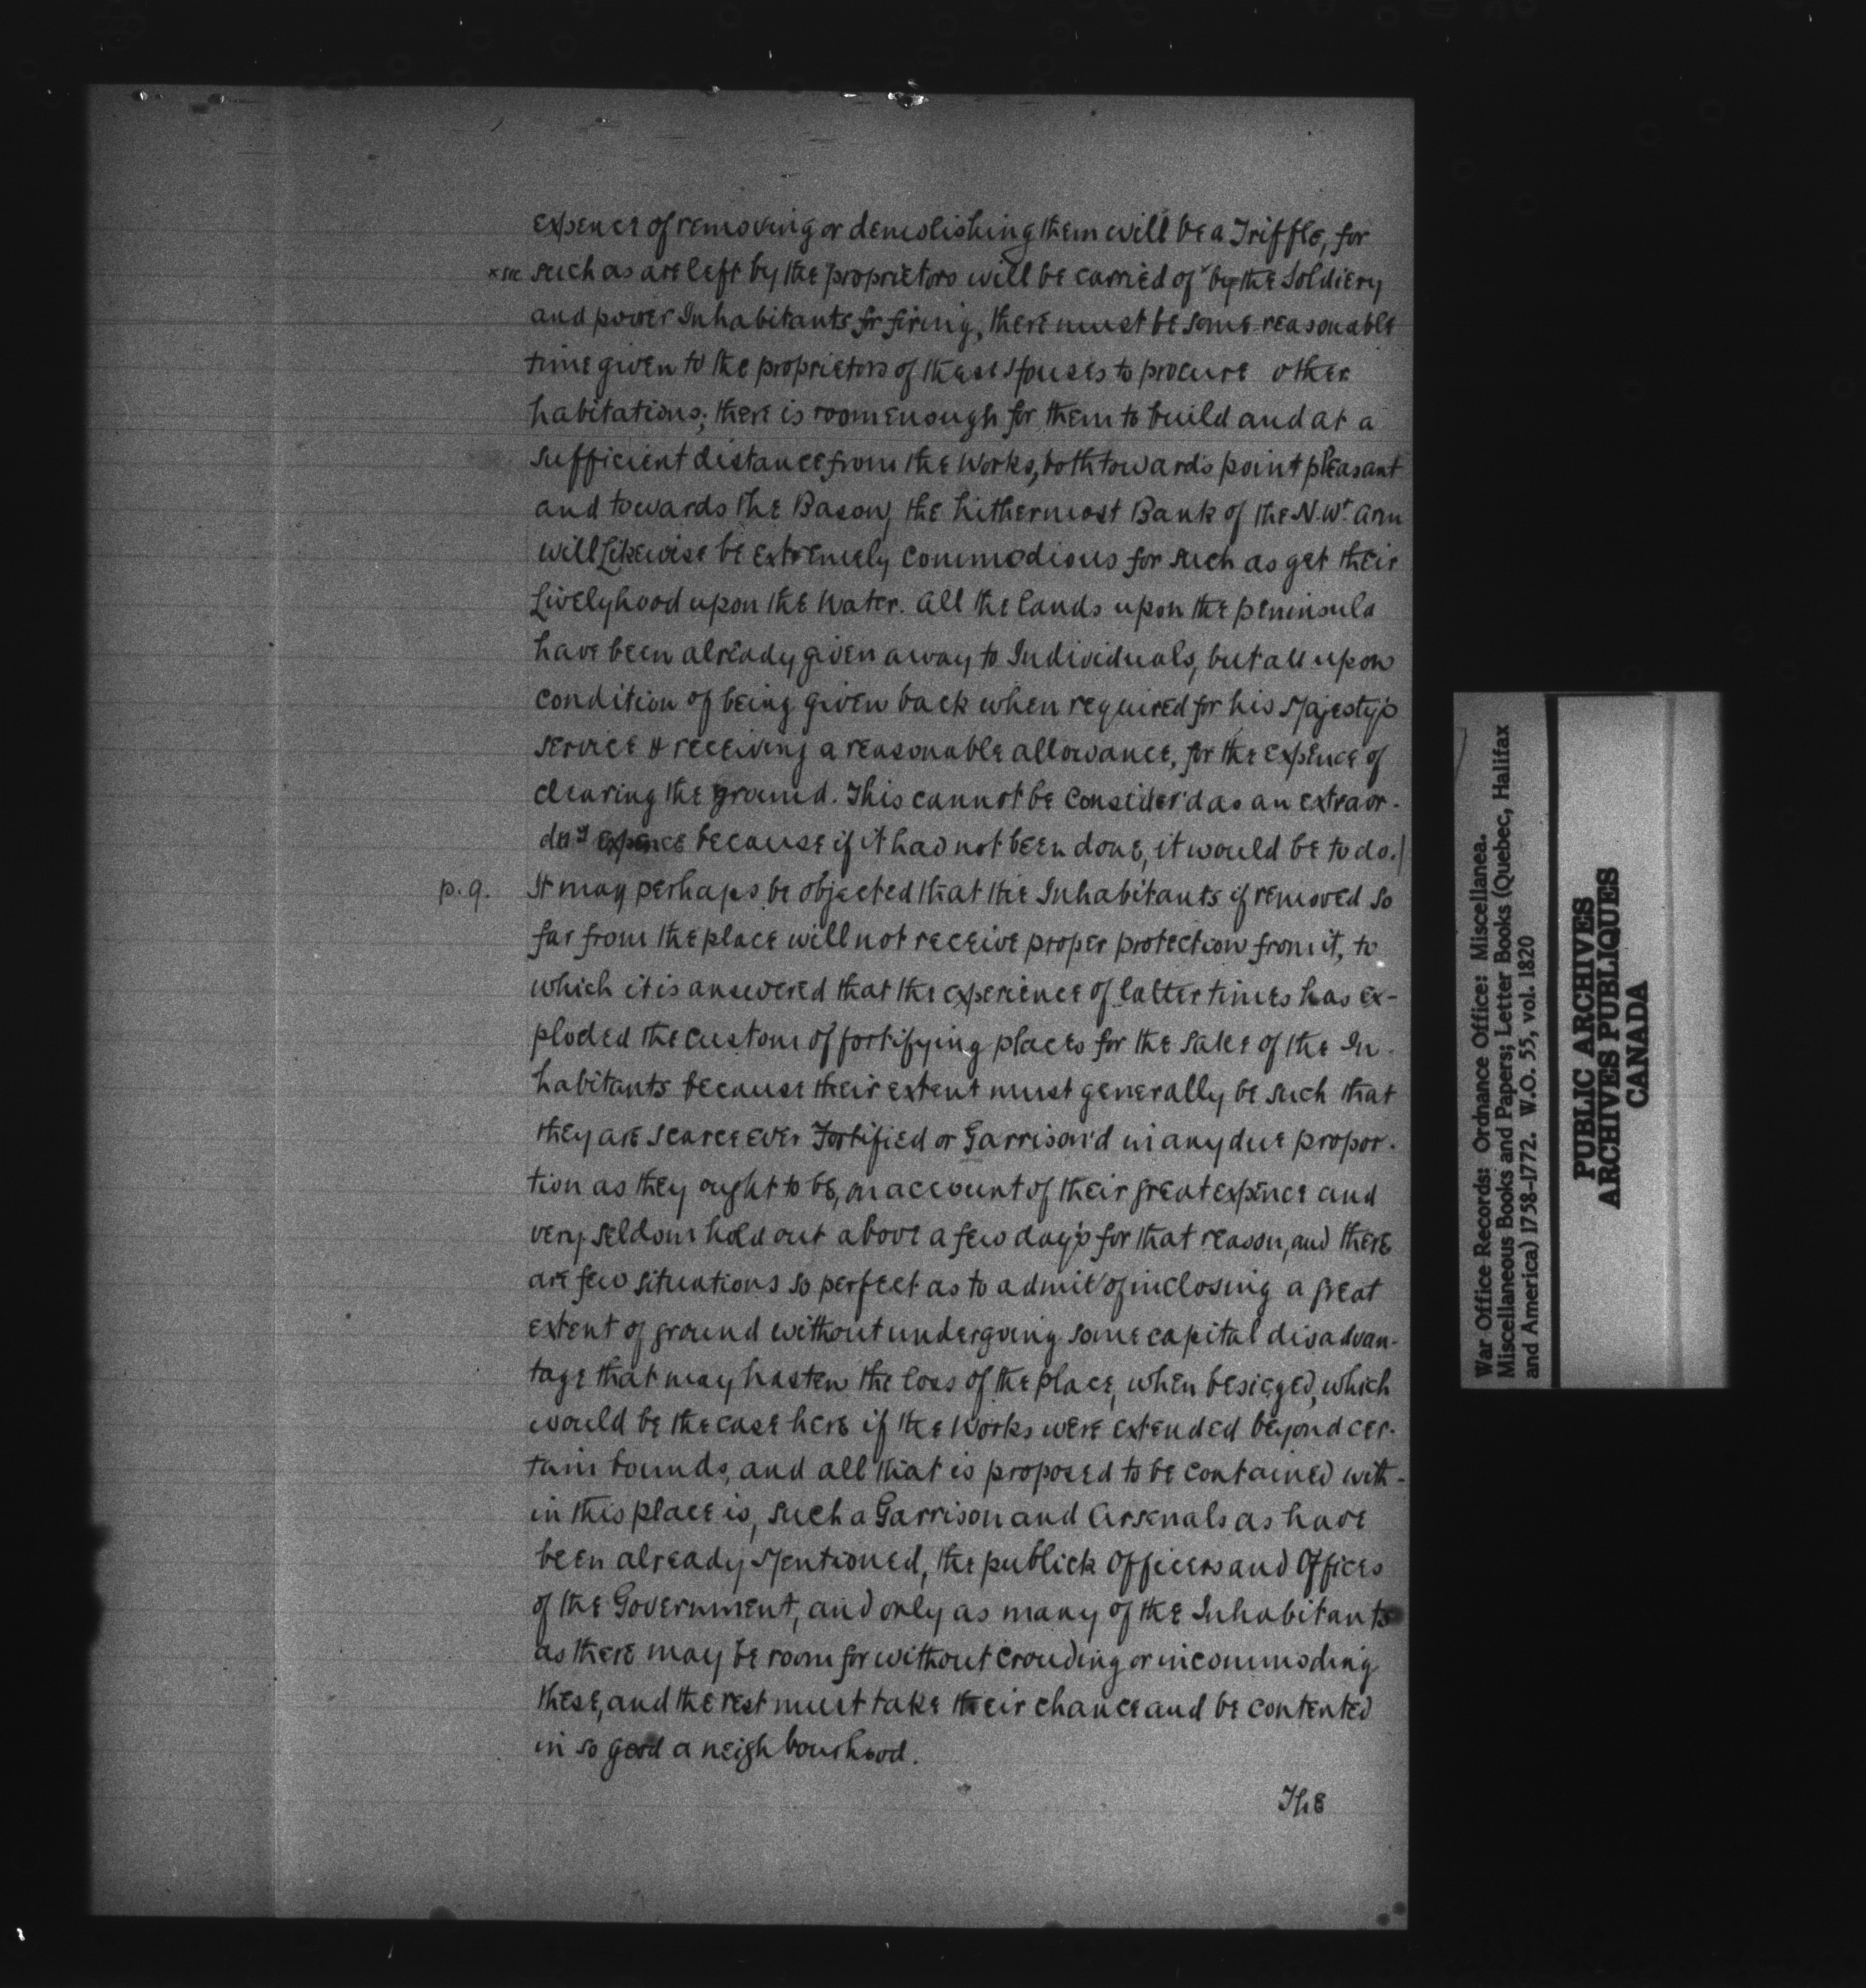 expence of removing or demolishing them will be a Triffle, for
× sic such as are left by the proprietors will be carried of × by the Soldiery
and poorer Inhabitants for firing, there must be some reasonable
time given to the proprietors of these Houses to procure other
habitations; there is room enough for them to build and at a
sufficient distance from the Works, both towards point pleasant
and towards the Bason, the hithermost Bank of the N. Wt. Arm
will Likewise be extremely commodious for such as get their
Livelyhood upon the Water. All the lands upon the peninsula
have been already given away to Individuals, but all upon
condition of being given back when required for his Majesty's
service & receiving a reasonable allowance, for the expence of
clearing the ground. This cannot be Consider'd as an extraor-
dny expence because if it had not been done, it would be to do.)
p. 9. It may perhaps be objected that the Inhabitants if removed so
far from the place will not receive proper protection from it, to
which it is answered that the experience of latter times has ex-
ploded the custom of fortifying places for the sake of the In-
habitants because their extent must generally be such that
they are scarce ever Fortified or Garrison'd in any due propor-
tion as they ought to be, on account of their great expence and
very seldom hold out above a few day's for that reason, and there
are few situations so perfect as to admit of inclosing a great
extent of ground without undergoing some capital disadvan-
tage that may hasten the loss of the place, when besieged, which
would be the case here if the Works were extended beyond cer-
tain bounds, and all that is proposed to be contained with-
in this place is, such a Garrison and Arsenals as have
been already Mentioned, the publick Officers and Offices
of the Government, and only as many of the Inhabitants
as there may be room for without Crouding or incommoding
these, and the rest must take their chance and be contented
in so good a neighbourhood.
The
War Office Records: Ordnance Office: Miscellanea.
Miscellaneous Books and Papers; Letter Books (Quebec, Halifax
and America) 1758-1772. W.O. 55, vol. 1820
PUBLIC ARCHIVES
ARCHIVES PUBLIQUES
CANADA